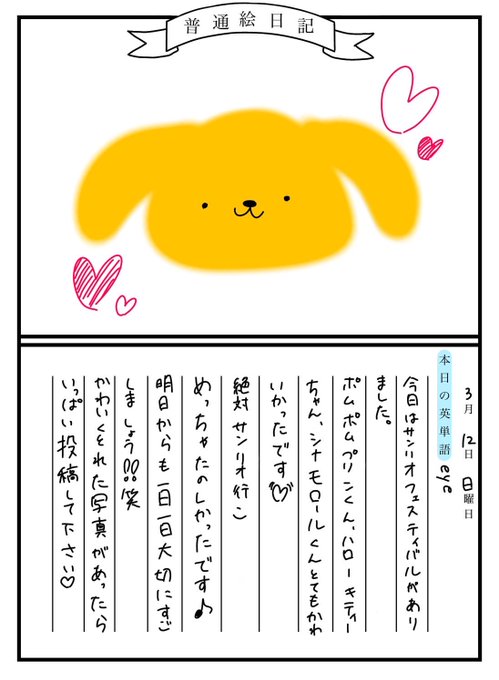 普通絵日記
3月12日日曜日
本日の英単語 eye
今日はサンリオフェスティバルがあり
ました。
ポムポムプリンくん、ハローキティー
ちゃん、シナモロールくんとてもかわ
いかったです♡
絶対サンリオ行こ
めっちゃたのしかったです♪
明日からも一日一日大切にすご
しましょう!!笑
かわいくとれた写真があったら
いっぱい投稿して下さい♡